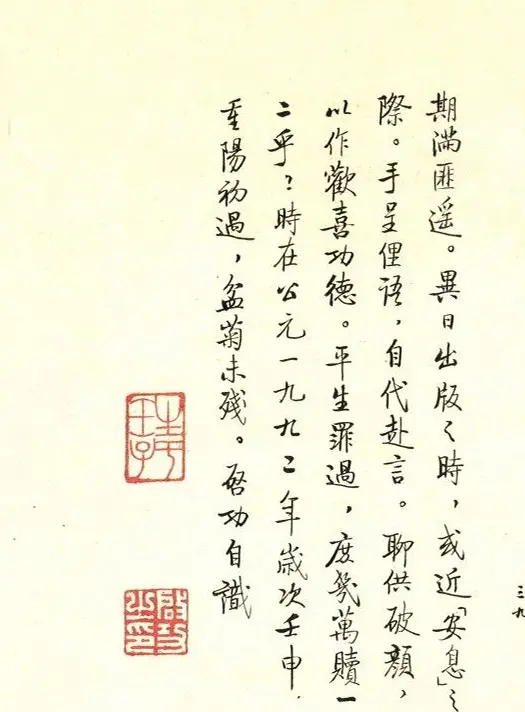 期滿匪遥。異日出版之時，或近「安息」之
際。手呈俚語，自代赴言。聊供破顏，
以作歡喜功德。平生罪過，庶幾萬贖一
二乎？時在公元一九九二年歲次壬申，
重陽初過，盆菊未殘。啓功自識
啟功之印
三九